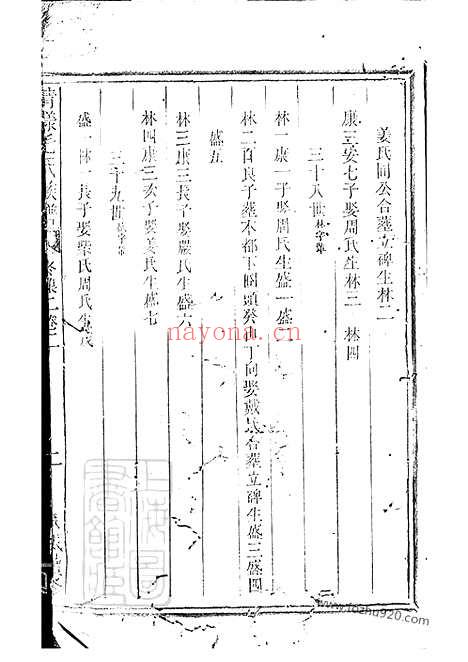 姜氏同公合葬立碑生林二
康三安七子娶周氏生林三 林四
三十八世林字輩
林一康一子娶周氏生盛一盛
林二百良子葬本都下園頭癸山丁向娶戴氏合葬立碑生盛三盛四
盛五
林三康三長子娶嚴氏生盛六
林四康三次子娶姜氏生盛七
三十九世
盛一林一長子娶柴氏周氏生
nayona.cn
www.fozhu920.com